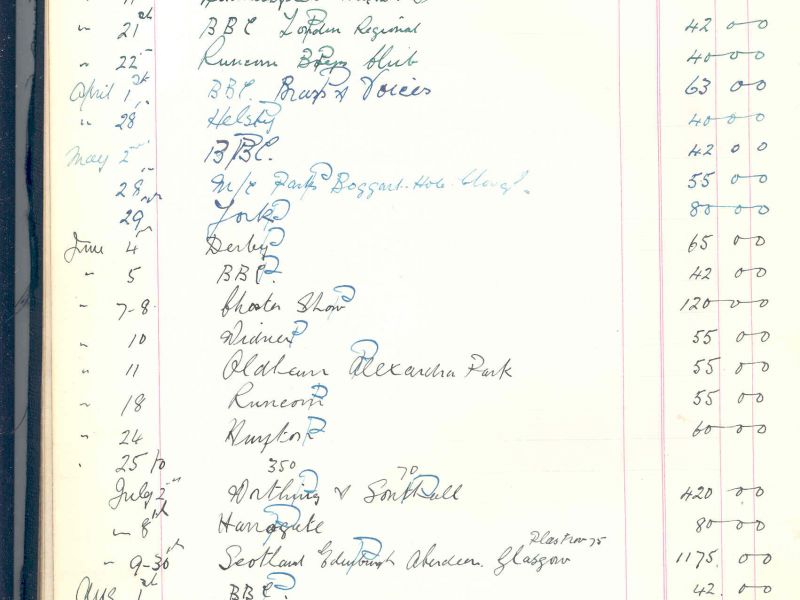 " 21st BBC London Regional 42 0 0
" 22nd Runcorn Boys Club 40 0 0
April 1st BBC. Brass & Voices 63 0 0
" 28 Helsby 40 0 0
May 2nd BBC. 42 0 0
28 M/c Parks Boggart Hole Clough. 55 0 0
29 York 80 0 0
June 4 Derby 65 0 0
" 5 BBC. 42 0 0
" 7-8 Chester Show 120 0 0
" 10 Widnes 55 0 0
" 11 Oldham Alexandra Park 55 0 0
" 18 Runcorn 55 0 0
" 24 Huyton 60 0 0
" 25 to 350 70
July 2nd Worthing & Southall 420 0 0
" 8th Harrogate 80 0 0
" 9-30th Scotland Edinburgh Aberdeen. Glasgow 75 1175. 0 0
Aug 1st BBC. 42. 0 0